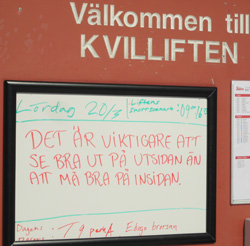 Välkommen till
KVILLIFTEN
Lördag 20/3
Liftens
DET ÄR VIKTIGARE ATT
SE BRA UT PÅ UTSIDAN ÄN
ATT MÅ BRA PÅ INSIDAN.
Dagens